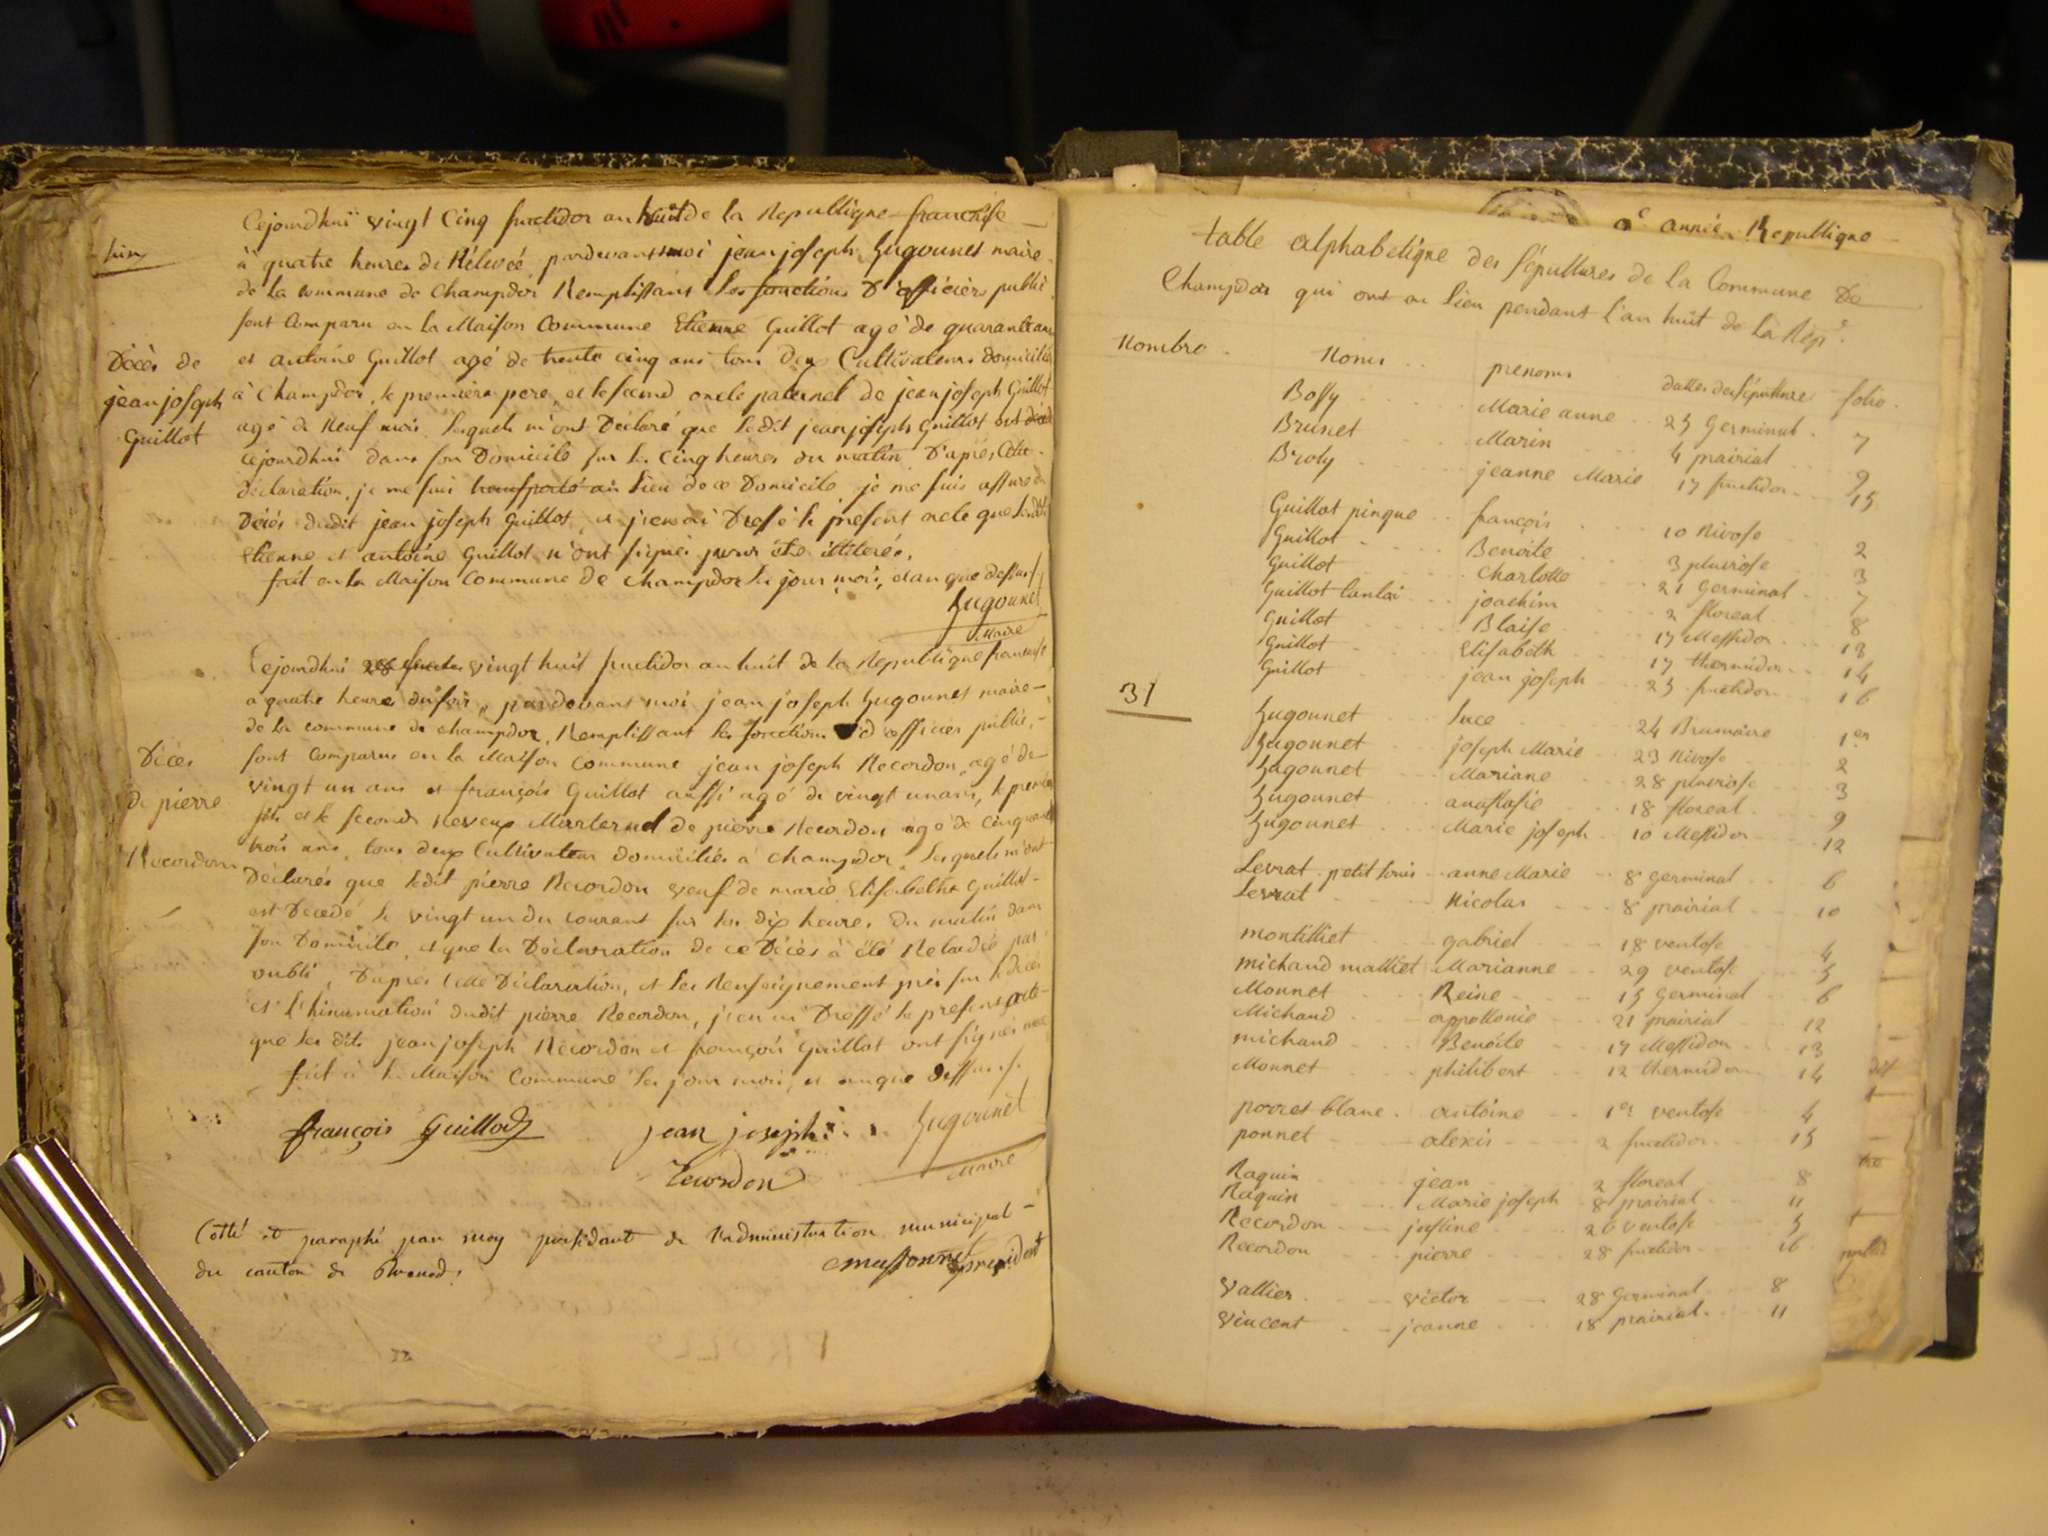 Cejourdhuï vingt Cinq fructidor an huit de la Republique francoise
à quatre heures de Rélevée pardevant moi jean joseph hugounet maire
de la commune de champdor Remplissant les fonctions D'officier public
sont Comparu en la Maison Commune Etienne Guillot agé de quarante ans
Décès de
jean joseph
Guillot
et antoine Guillot agé de trente cinq ans tous deux Cultivateurs domiciliés
à Champdor, le premier pere, et le second oncle paternel de jean joseph Guillot
agé de Neuf mois, lesquels m'ont Déclaré que ledit jean joseph Guillot est decedé
cejourdhui dans son Domicile sur les Cinq heures du matin, D'après Cette
déclaration, je me suis au lieu de ce Domicile, je me suis assuré du
Décès dudit jean joseph Guillot, et j'en ai Dressé le present acte que lesdits
Etienne et antoine Guillot n'ont signés pour être illiterés.
fait en la Maison Commune de champdor les jour, mois, et an que dessus
hugounet
Maire
Cejourdhui vingt huit fructidor an huit de la Republique francaise
a quatre heures du soir, pardevant moi jean joseph hugounet maire
de la commune de champdor, Remplissant les fonctions d'officier public,
sont Comparus en la Maison Commune jean joseph Recordon, agé de
vingt un ans et françois Guillot aussi agé de vingt un ans, le premier
Décès
de pierre
Recordon
fils et le second Neveux Maternel de pierre Recordon agé de cinquante
trois ans, tous deux Cultivateur domiciliés à champdor, lesquels m'ont
Déclarés que ledit pierre Recordon veuf de marie Elisabethe Guillot
est Décedé le vingt un du courant sur les dix heures du matin dans
son Domicile, et que la Déclaration de ce Décès à été Retardée par
oubli, D'apres cette Déclaration, et les Renseignement pris sur le décès
et l'hinumation dudit pierre Recordon, j'en ai Dressé le present acte
que les dits jean joseph Recordon et françois Guillot ont signés
fait à la Maison Commune les jour mois, et an que dessus
françois Guillot jean joseph hugounet
Recordon Maire
Cotté et paraphé par moy président de l'administration municipal
du canton de président
9e année Republique
table alphabetique des sépultures de la Commune De
Champdor qui ont eu lieu pendant l'an huit de la Rép.
Nombre Noms prenoms dattes des sépulture folio
Bossy Marie anne 25 Germinal 7
Brunet Marin 4 prairial 9
Broly jeanne Marie 17 fructidor 15
Guillot pinque françois 10 Nivose 2
Guillot Benoite 3 pluviose 3
Guillot Charlotte 21 Germinal 7
Guillot joachim 2 floreal 8
Guillot Blaise 17 Messidor 13
Guillot Elisabeth 17 thermidor 14
Guillot jean joseph 25 fructidor 16
31
hugounet luce 24 Brumaire 1er
hugounet joseph Marie 29 Nivose 2
hugounet Mariane 28 pluviose 3
hugounet anastasie 18 floreal 9
hugounet Marie joseph 10 Messidor 12
Levrat petit louis anne Marie 8 germinal 6
Levrat Nicolas 8 prairial 10
montilliet gabriel 18 ventose 4
michaud malliet Marianne 29 ventose 5
Monnet Reine 15 Germinal 6
Michaud appollonie 21 prairial 12
michaud Benoite 17 Messidor 13
Monnet philibert 12 thermidor 14
porret blanc antoine 1er ventose 4
ponnet alexis 2 fructidor 15
Raquin jean 2 floreal 8
Raquin Marie joseph 8 prairial 11
Recordon justine 26 ventose 5
Recordon pierre 28 fructidor 16
Vallier victor 28 Germinal 8
Vincent jeanne 18 prairial 11